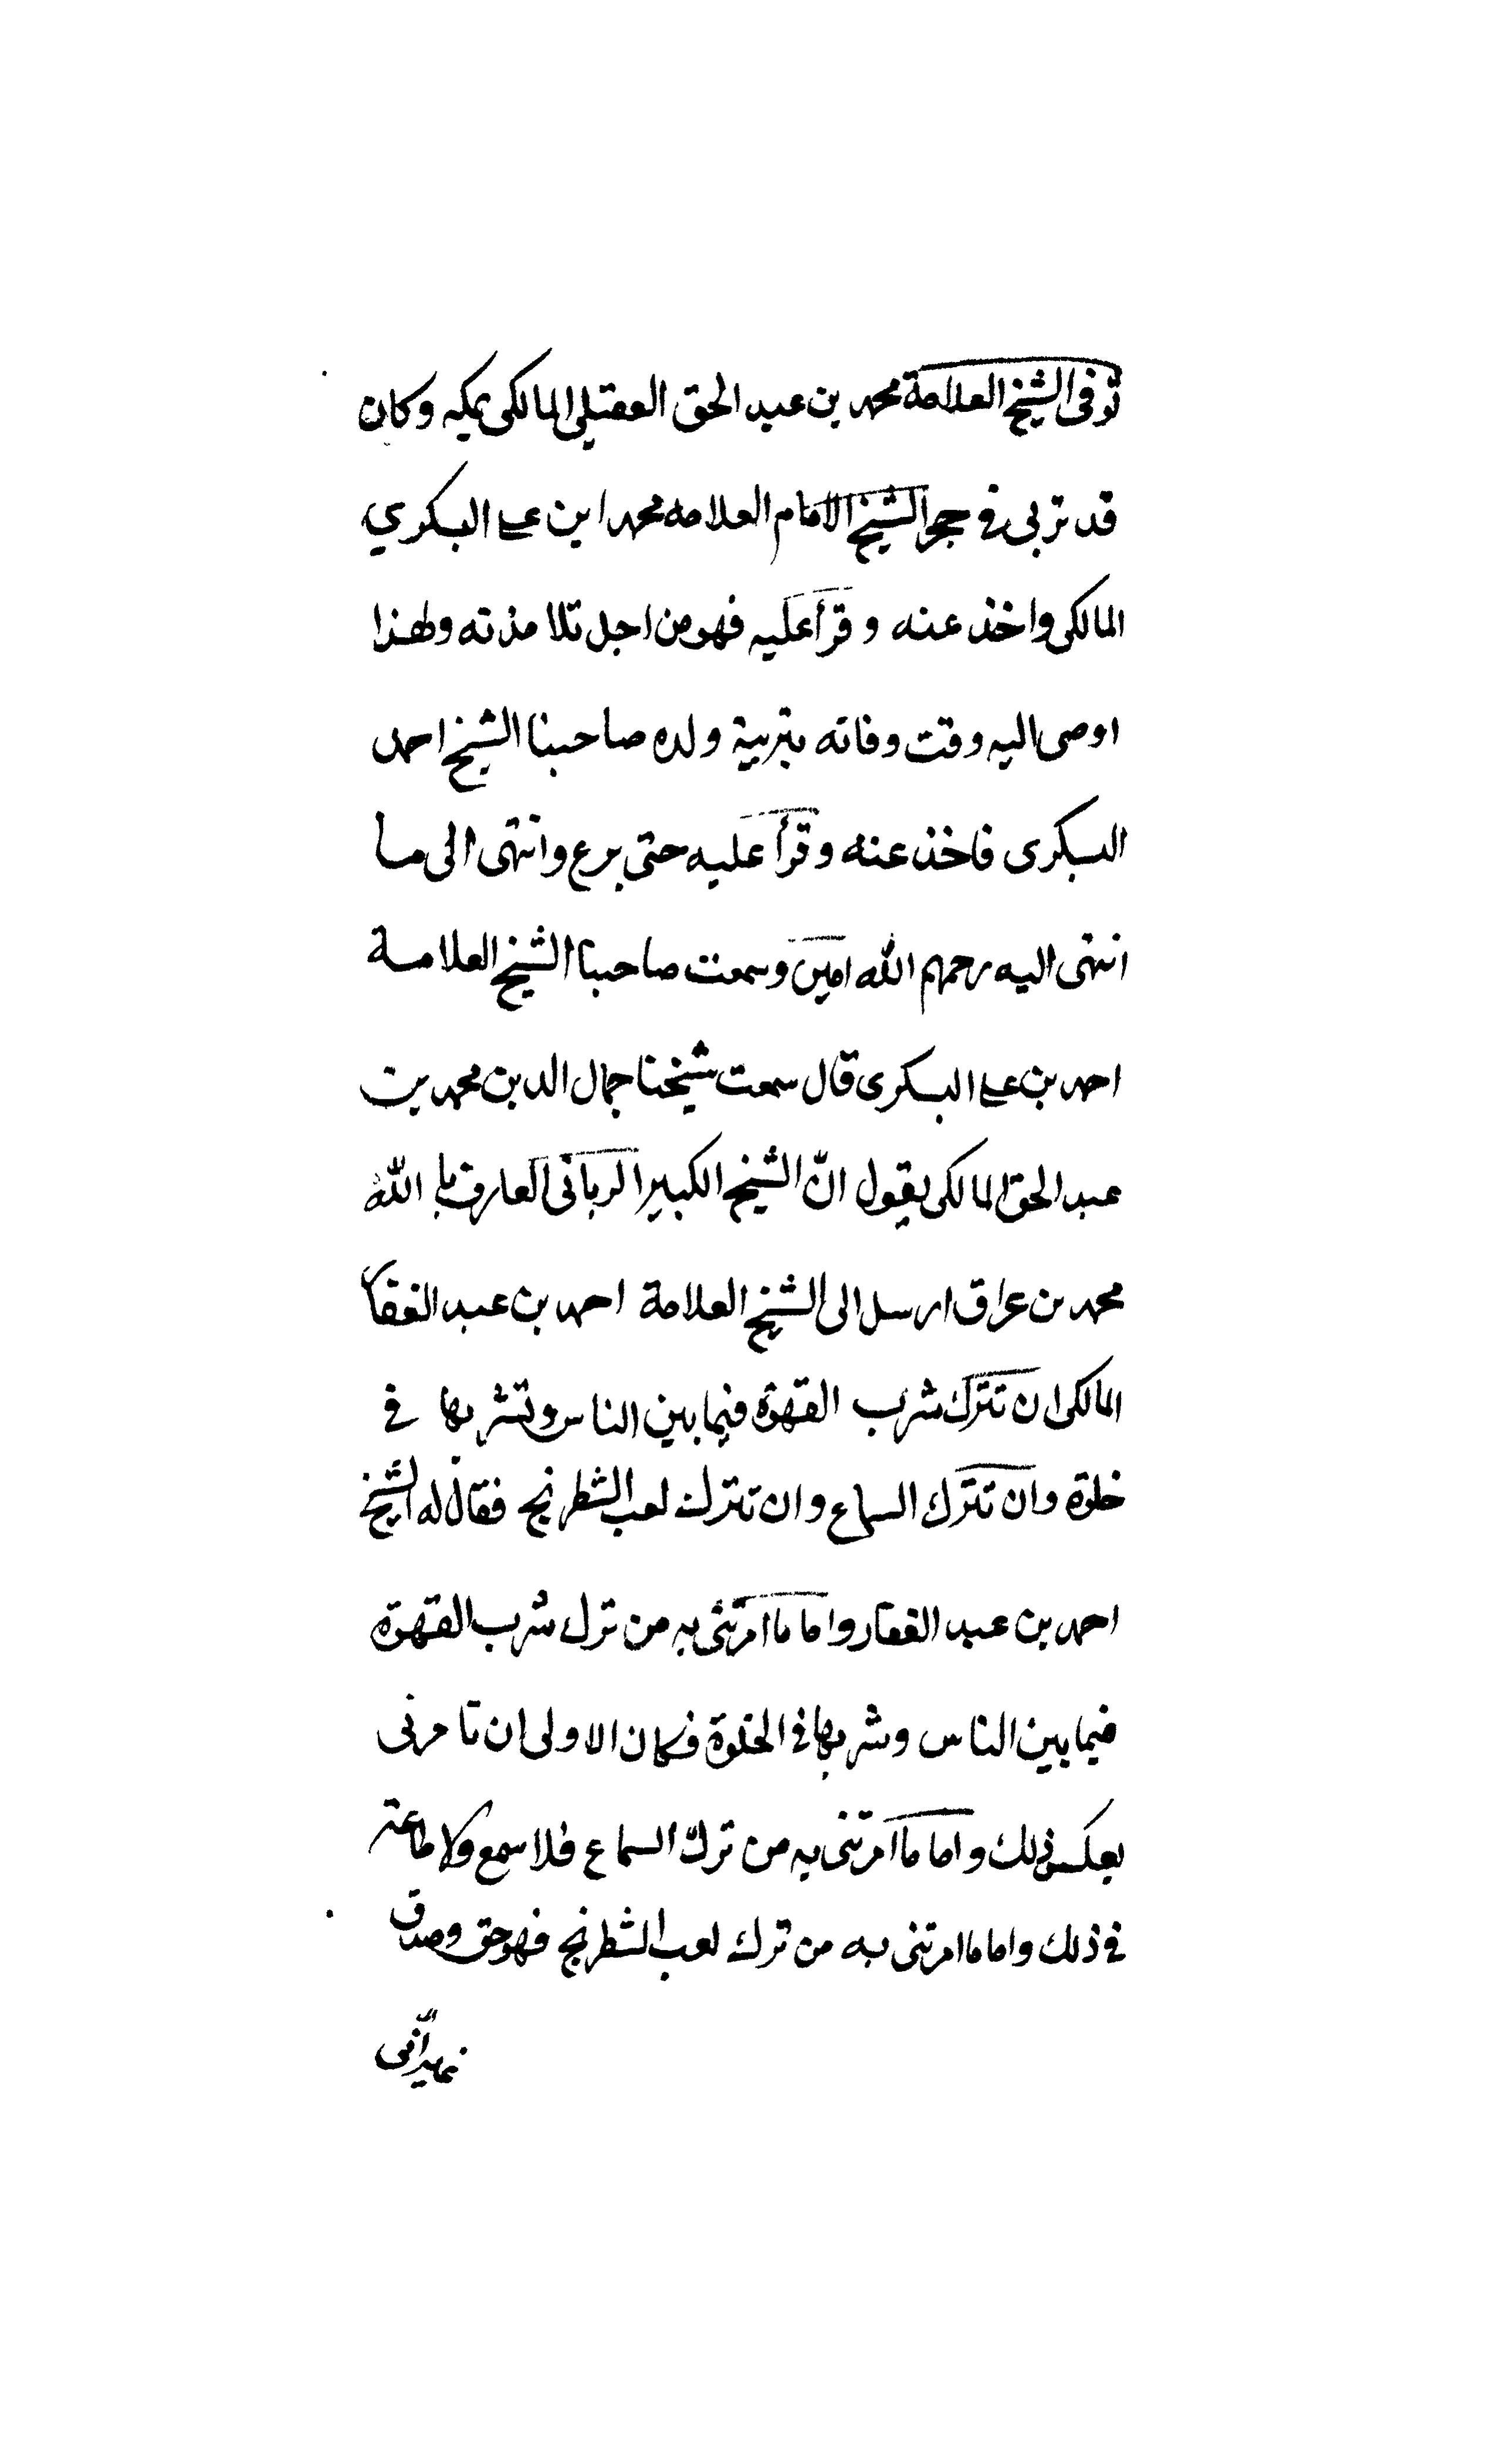 توفى الشيخ العلامة محمد بن عبد الحق العقيلى المالكى بمكه وكان
قد تربى فى حجر الشيخ الامام العلامه محمد ابن على البسكري
المالكى واخذ عنه وقرأ عليه فهو من اجل تلامذته ولهذا
اوصى اليه وقت وفاته بتربية ولده صاحبنا الشيخ احمد
البسكرى فاخذ عنه وقرأ عليه حتى برع وانتهى الى ما
انتهى اليه رحمهم الله امين وسمعت صاحبنا الشيخ العلامة
احمد بن على البسكرى قال سمعت شيخنا جمال الدين محمد بن
عبد الحق المالكى يقول انّ الشيخ الكبير الربانى العارف با الله
محمد بن عراق ارسل الى الشيخ العلامة احمد بن عبد الغفار
المالكى ان تترك شرب القهوة فيما بين الناس وتشربها فى
خلوة وان تترك السماع وان تترك لعب الشطرنج فقال له الشيخ
احمد بن عبد الغفار واما ما امرتنى به من ترك شرب القهوة
فيما بين الناس وشربها فى الخلوة فكان الاولى ان تامرنى
بعكس ذلك واما ما امرتنى به من ترك السماع فلا سمع ولا طاعة
فى ذلك واما ما امرتنى به من ترك لعب الشطرنج فهو حق وصدق